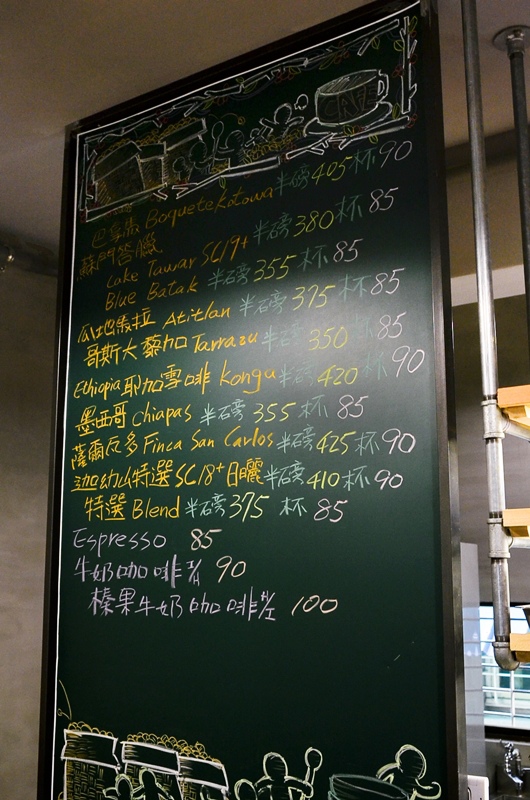 CAFE
巴拿馬 Boquete Kotowa 半磅 405 杯 90
蘇門答臘
Lake Tawar SC19+ 半磅 380 杯 85
Blue Batak 半磅 355 杯 85
瓜地馬拉 Atitlan 半磅 375 杯 85
哥斯大黎加 Tarrazu 半磅 350 杯 85
Ethiopia 耶加雪啡 Konga 半磅 420 杯 90
墨西哥 Chiapas 半磅 355 杯 85
薩爾瓦多 Finca San Carlos 半磅 425 杯 90
迦幼山特選 SC18+ 日曬 半磅 410 杯 90
特選 Blend 半磅 375 杯 85
Espresso 85
牛奶咖啡 90
榛果牛奶咖啡 100